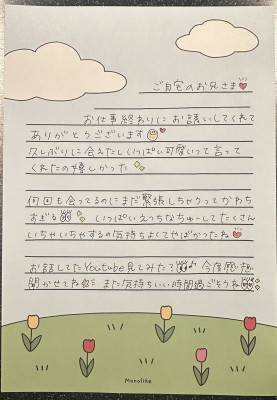 ご自宅のお兄さま
お仕事終わりにお誘いしてくれて
ありがとうございます
久しぶりに会えたしくいっぱい可愛いって言って
くれたの嬉しかった
何回も会ってるのにまだ緊張しちゃうってかわち
すぎる いっぱいえっちなちゅーしてたくさん
いちゃいちゃするの気持ちよくてやばかったね
お話してたYoutube見てみたろ 今度感想
聞かせてね また気持ちいい時間過ごそうね
Monolike